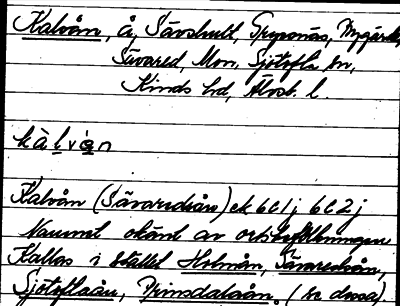 Kalvån, å, Sävshult, Grysnäs, Nygärde,
Sävared, Mon, Sjötofta sn,
Kinds hd, Älvsb. l.
kàlvån
Kalvån (Sävaredsån) ek 6C1j 6C2j
Namnet okänt av ortsbefolkningen
Kallas i stället Holmån, Sävaredsån,
Sjötoftaån, Prinsdalaån. (se dessa)